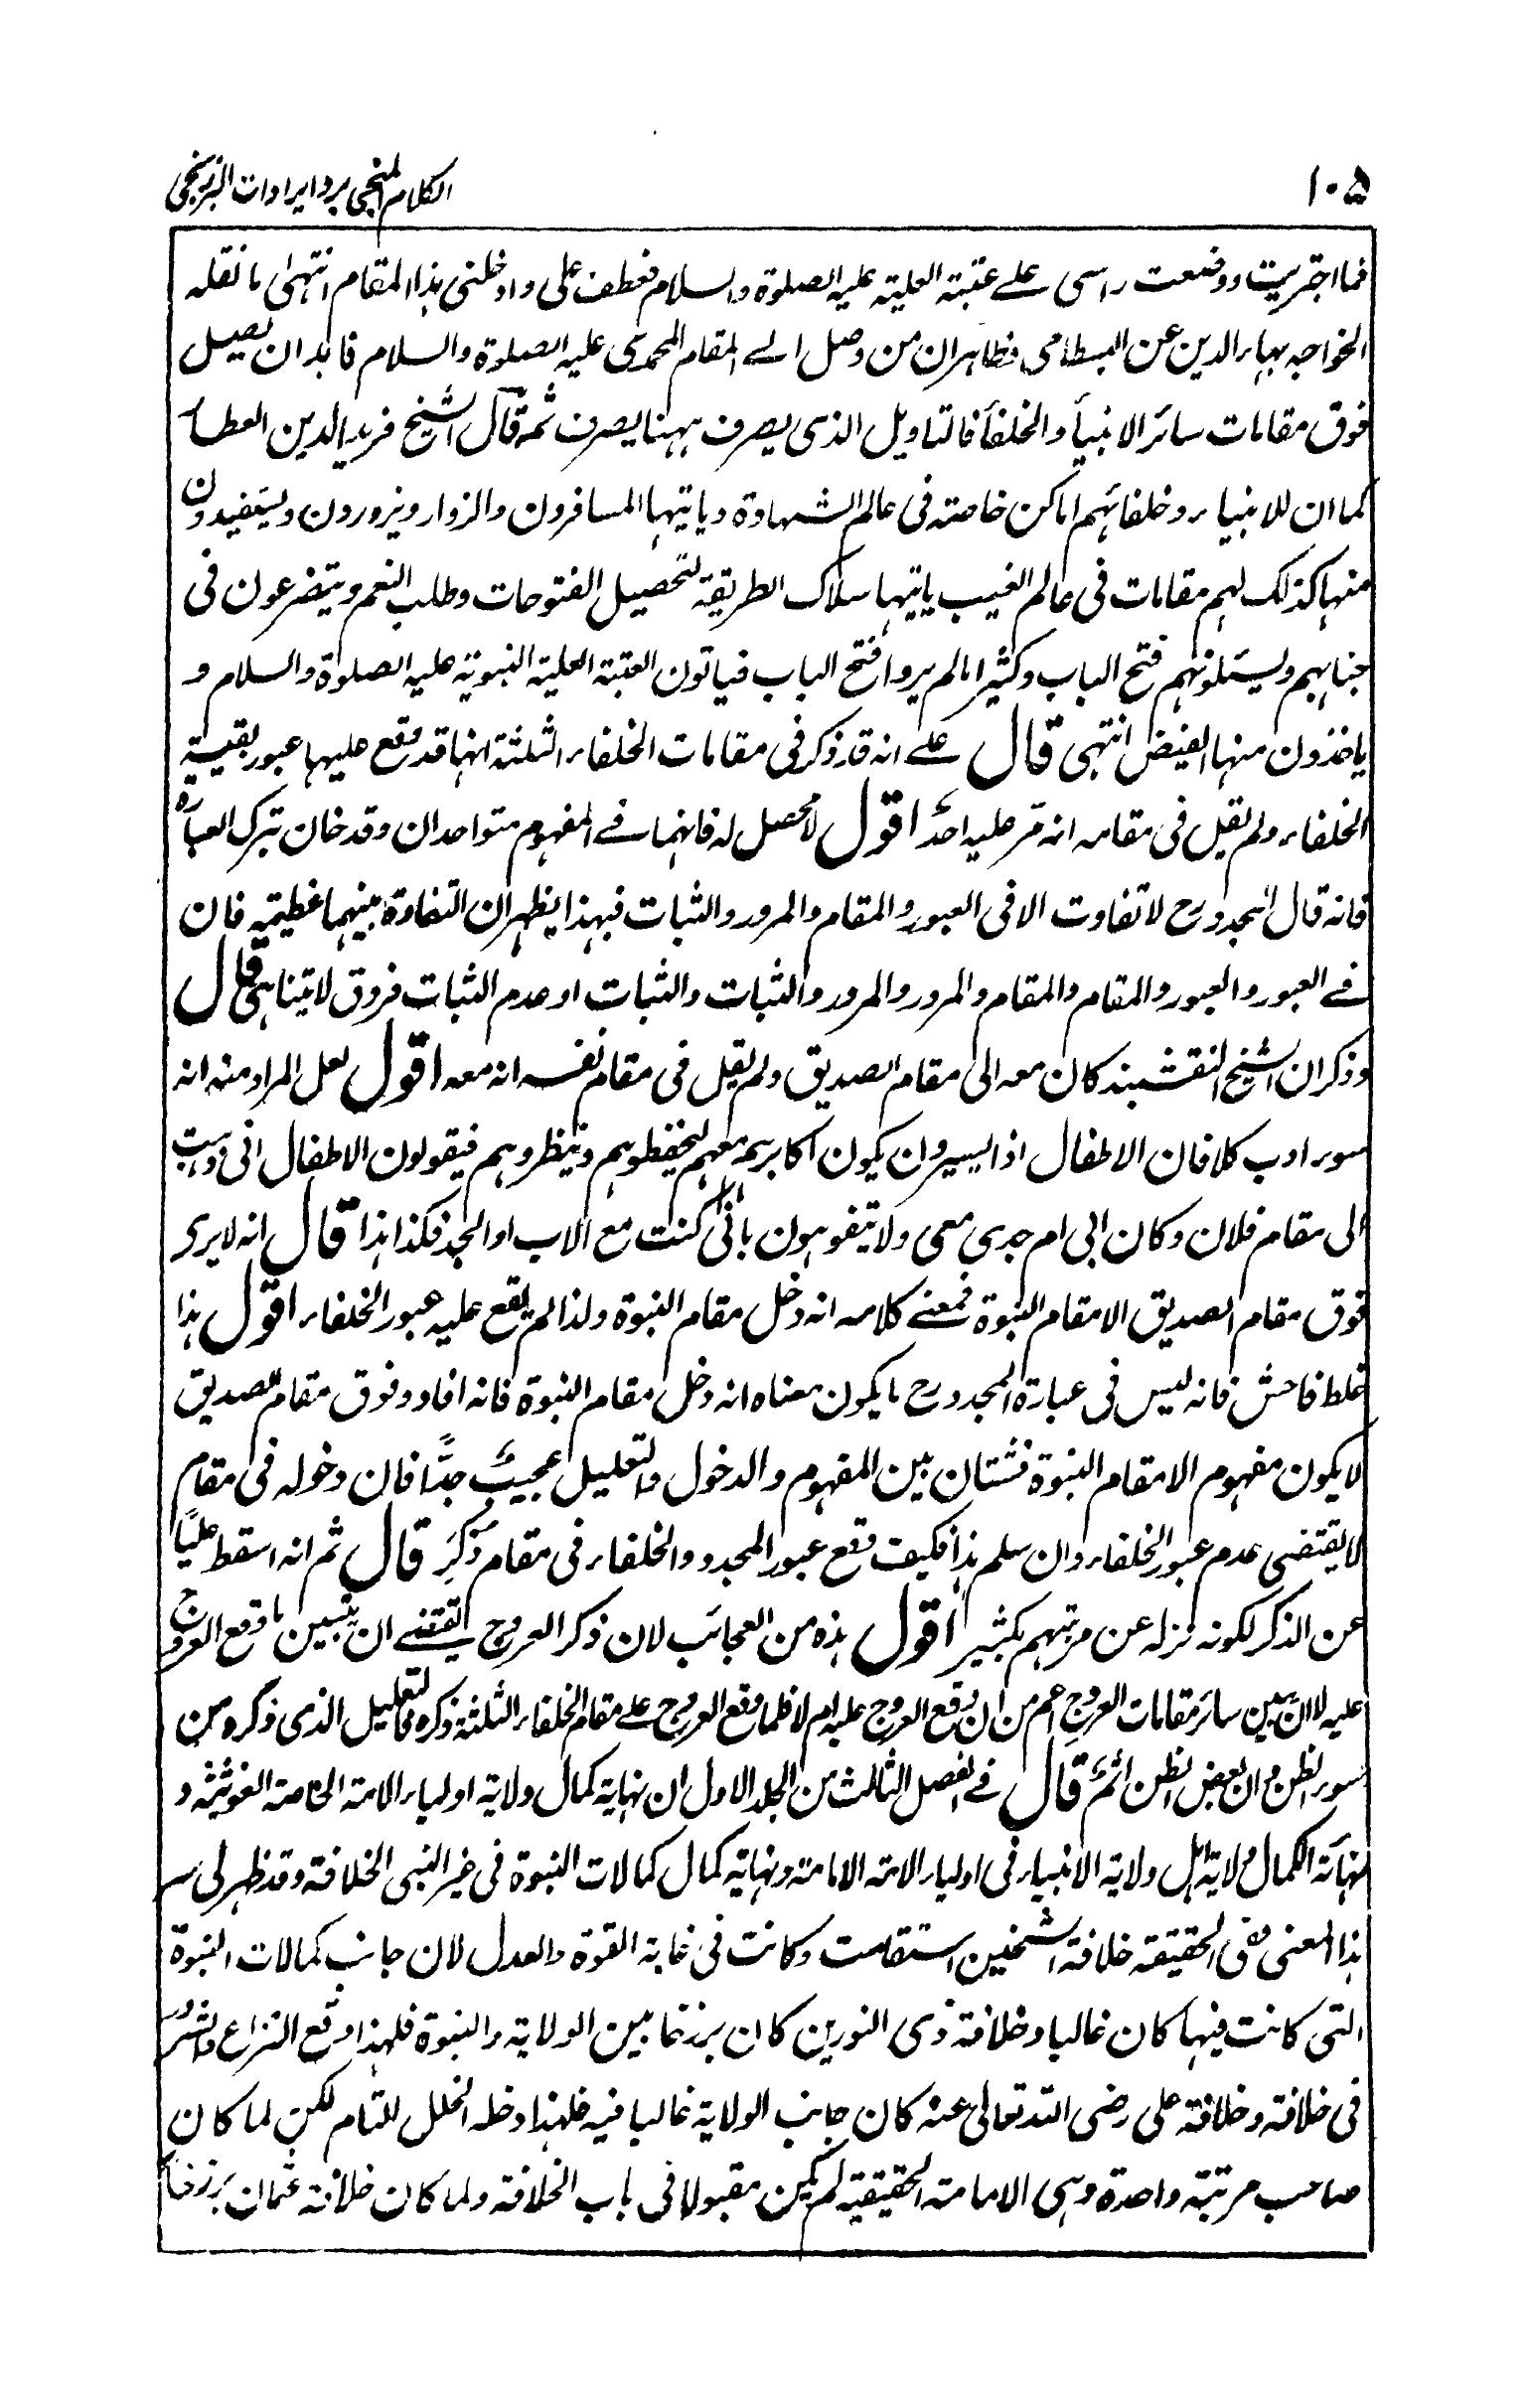 ١٠٥ الكلام المنجى برد ايرادات البرزنجى
فما اجتريت ووضعت راسى علے عتبته العلية عليه الصلوة والسلام فعطف على وادخلنى هذا المقام انتهىٰ ما نقله
الخواجه بهاء الدين عن البسطامى فظاهر ان من وصل الے المقام المحمدى عليه الصلوة والسلام فابد ان يصيل
فوق مقامات سائر الانبيأ والخلفأ فالتاويل الذى يصرف ههنا يصرف ثمه قال الشيخ فريد الدين العطار
كما ان للانبياء وخلفائهم اماكن خاصته فى عالم الشهادة وياتيها المسافرون والزوار ويزورون ويستفيدون
منها كذلك لهم مقامات فى عالم الغيب ياتيها سلاك الطريقة لتحصيل الفتوحات وطلب النعم ويتضرعون فى
جنابهم ويسئلونهم فتح الباب وكثيرا مالم يروا فتح الباب فياتون العتبة العلية النبوية عليه الصلوة والسلام و
ياخذون منها الفيض انتهى قال علے انه قد ذكر فى مقامات الخلفاء الثلثة انها قد وقع عليها عبور بقية
الخلفاء ولم يقل فى مقامه انه مرّ عليه احدٌ اقول لا محصل له فانهما فے المفهوم متواحدان وقد خان بترك العبارة
فانه قال المجدد رح لا تفاوت الا فى العبور والمقام والمرور والثبات فبهذا يظهر ان التفاوة بينهما عظيمة فان
فے العبور والعبور والمقام والمقام والمرور والمرور والثبات والثبات او عدم الثبات فروق لا يتناهى قال
وذكر ان الشيخ النقشبند كان معه الى مقام الصديق ولم يقل فى مقام نفسه انه معه اقول لعل المراد منه انه
سوء ادب كلا فان الاطفال اذا يسيرون يكون اكابرهم معهم ليحفظوهم وينظروهم فيقولون الاطفال انى ذهبت
الى مقام فلان وكان ابى ام جدى معى ولا يتفوهون بانى كنت مع الاب او الجد فكذا هذا قال انه لا يرى
فوق مقام الصديق الا مقام النبوة فمعنے كلامه انه دخل مقام النبوة ولذا لم يقع عليه عبور الخلفاء اقول هذا
غلط فاحش فانه ليس فى عبارة المجدد رح ما يكون معناه انه دخل مقام النبوة فانه افاد وفوق مقام الصديق
لا يكون مفهوم الا مقام النبوة فشتان بين المفهوم والدخول والتعليل عجيبٌ جدًّا فان دخوله فى مقام
لا يقتضى عدم عبور الخلفاء وان سلم هذا فكيف وقع عبور المجدد والخلفاء فى مقام ذُكِرَ قال ثم انه اسقط عليًّا
عن الذكر لكونه نزله عن مرتبتهم بكثير اقول هذه من العجائب لان ذكر العروج يقتضے ان يتبين ما وقع العروج
عليه لا ان يبين سائر مقامات العروج اعم من ان يقع العروج عليه ام لا فلما وقع العروج علے مقام الخلفاء الثلثة ذكره فالتعليل الذى ذكره من
سوء الظن وان بعض الظن اثم قال فے الفصل الثالث من الجلد الاول ان نهاية كمال ولاية اولياء الامة الخاصة الغوثية و
نهاية الكمال ولاية اهل ولاية الانبياء فى اولياء الامة الامامته ونهاية كمال كمالات النبوة فى غير النبى الخلافة وقد ظهر لى سر
هذا المعنى ففى الحقيقته خلافة الشيخين استقامت وكانت فى غاية القوة والعدل لان جانب كمالات النبوة
التى كانت فيها كان غالبا وخلافة ذى النورين كان برزخا بين الولاية والنبوة فلهذا وقع النزاع والشر
فى خلافة وخلافة على رضى الله تعالى عنه كان جانب الولاية غالبا فيه فلهذا دخله الخلل للتام لكن لما كان
صاحب مرتبة واحدة وهى الامامته الحقيقية لم يكن مقبولا فى باب الخلافة ولما كان خلافة عثمان برزخا